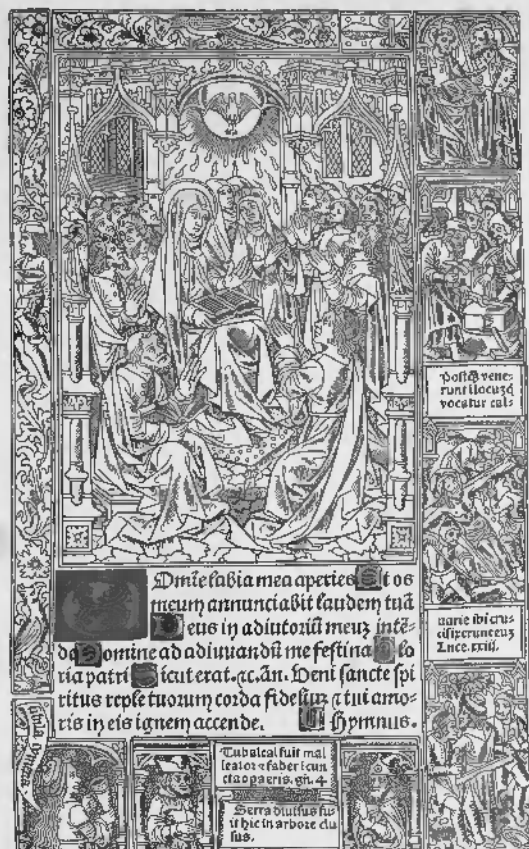 Dmīe labia mea aperies Et os
meum annunciabit laudem tuā
Deus in adiutoriū meuz intē-
de Domine ad adiuuandū me festina Glo
ria patri Sicut erat. ⁊c. Añ. Veni sancte spi
ritus reple tuorum corda fideliuz ⁊ tui amo-
ris in eis ignem accende. Hymnus.
Postq̄ vene-
runt ī locuz q̄
vocatur cal-
uarie ibi cru-
cifixerunt eum
Luce. xxiii.
Tubalcal fuit mal
leator ⁊ faber ī cun
cta opa eris. gñ. 4.
Serra diuisus fu-
it hic in arbore clu
sus.